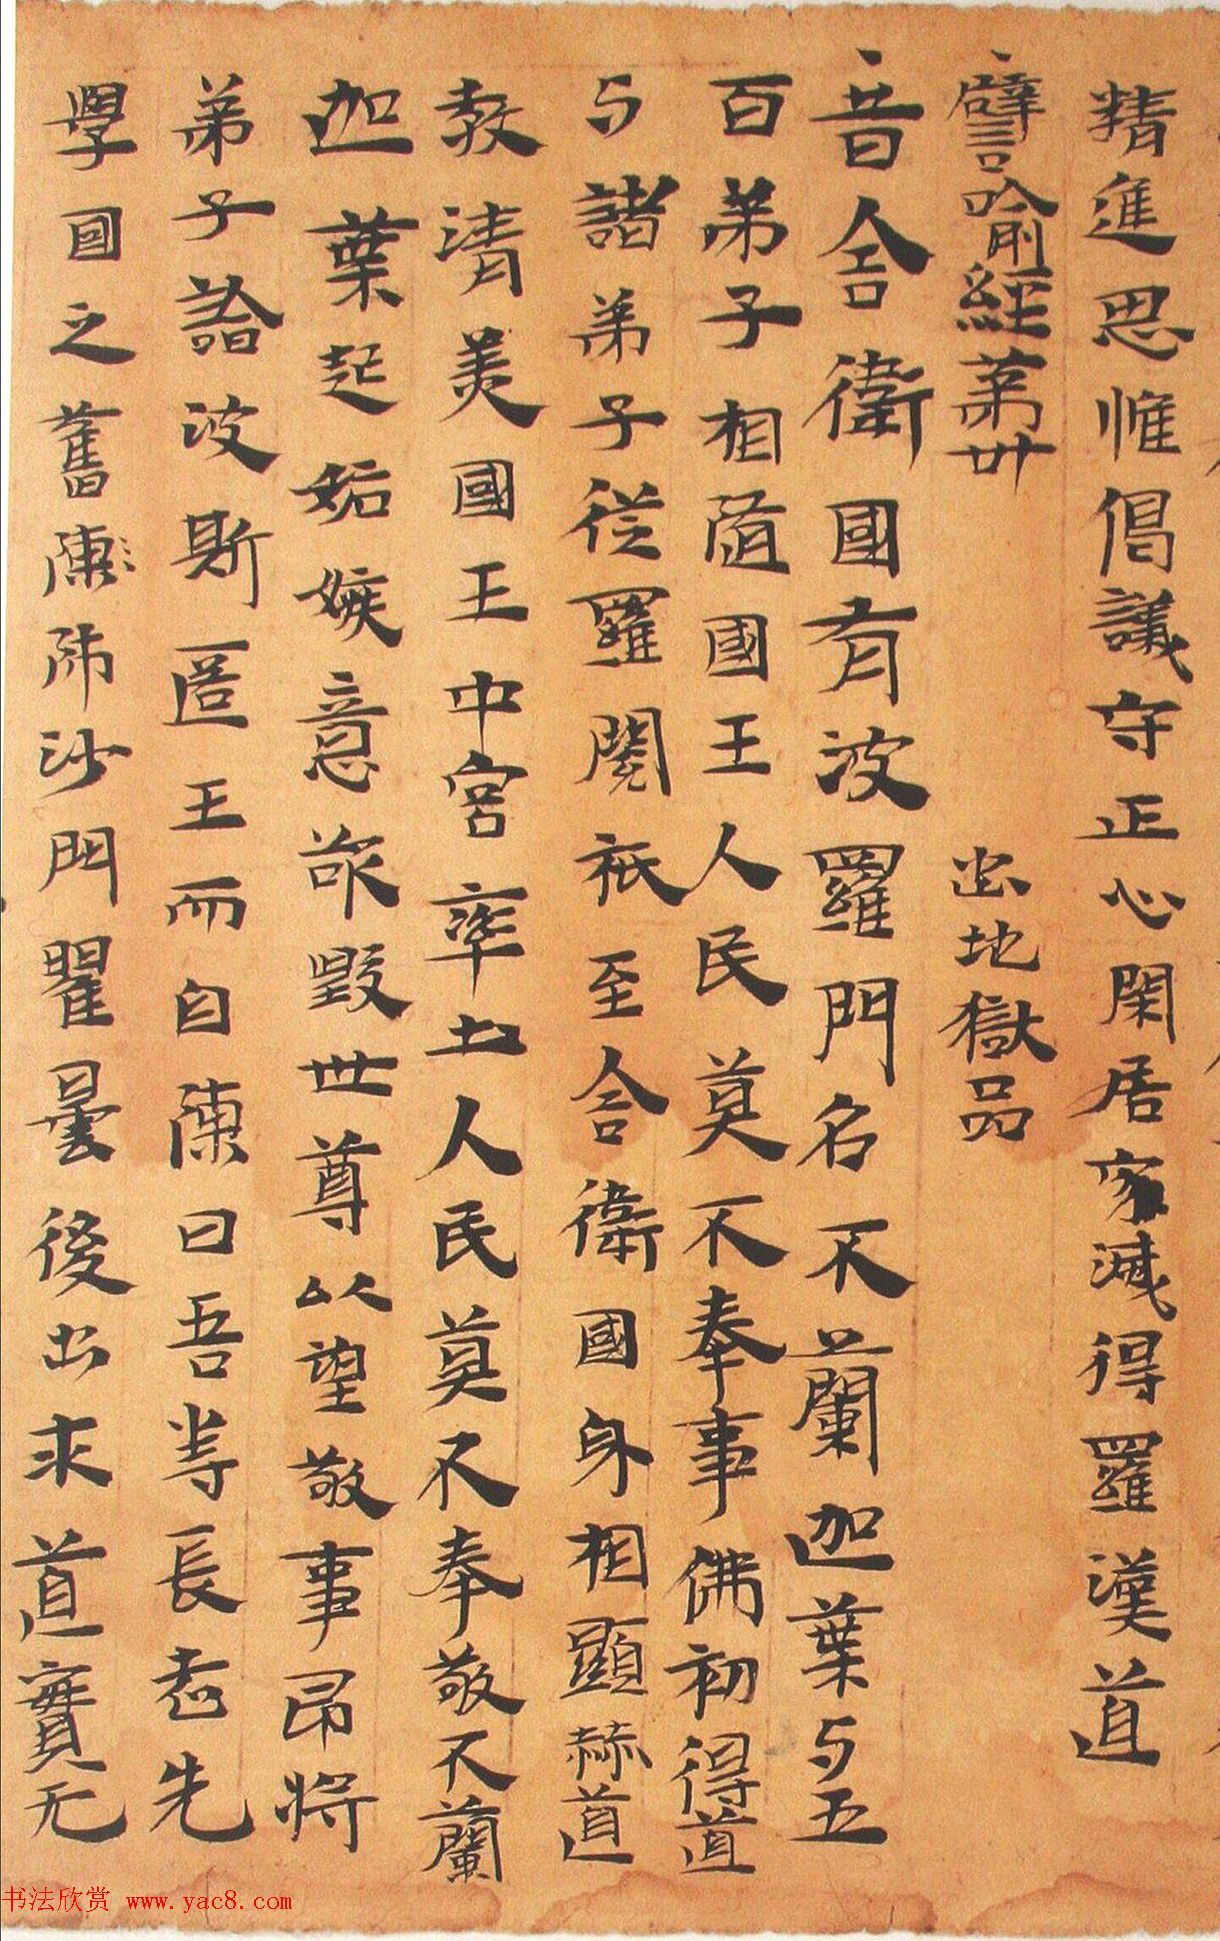 精進思惟偈議守正心閑居家減得羅漢道
譬喻經第卅 出地獄品
昔舍衛國有波羅門名不蘭迦葉与五
百弟子相隨國王人民莫不奉事佛初得道
与諸弟子從羅閱祇至舍衛國身相顯赫道
教清美國王中宮率土人民莫不奉敬不蘭
迦葉起妬嫉意欲毀世尊以望敬事昂將
弟子詣波斯匿王而自陳曰吾等長老先
學國之舊師沙門瞿曇後出求道實无
书法欣赏 www.yac8.com